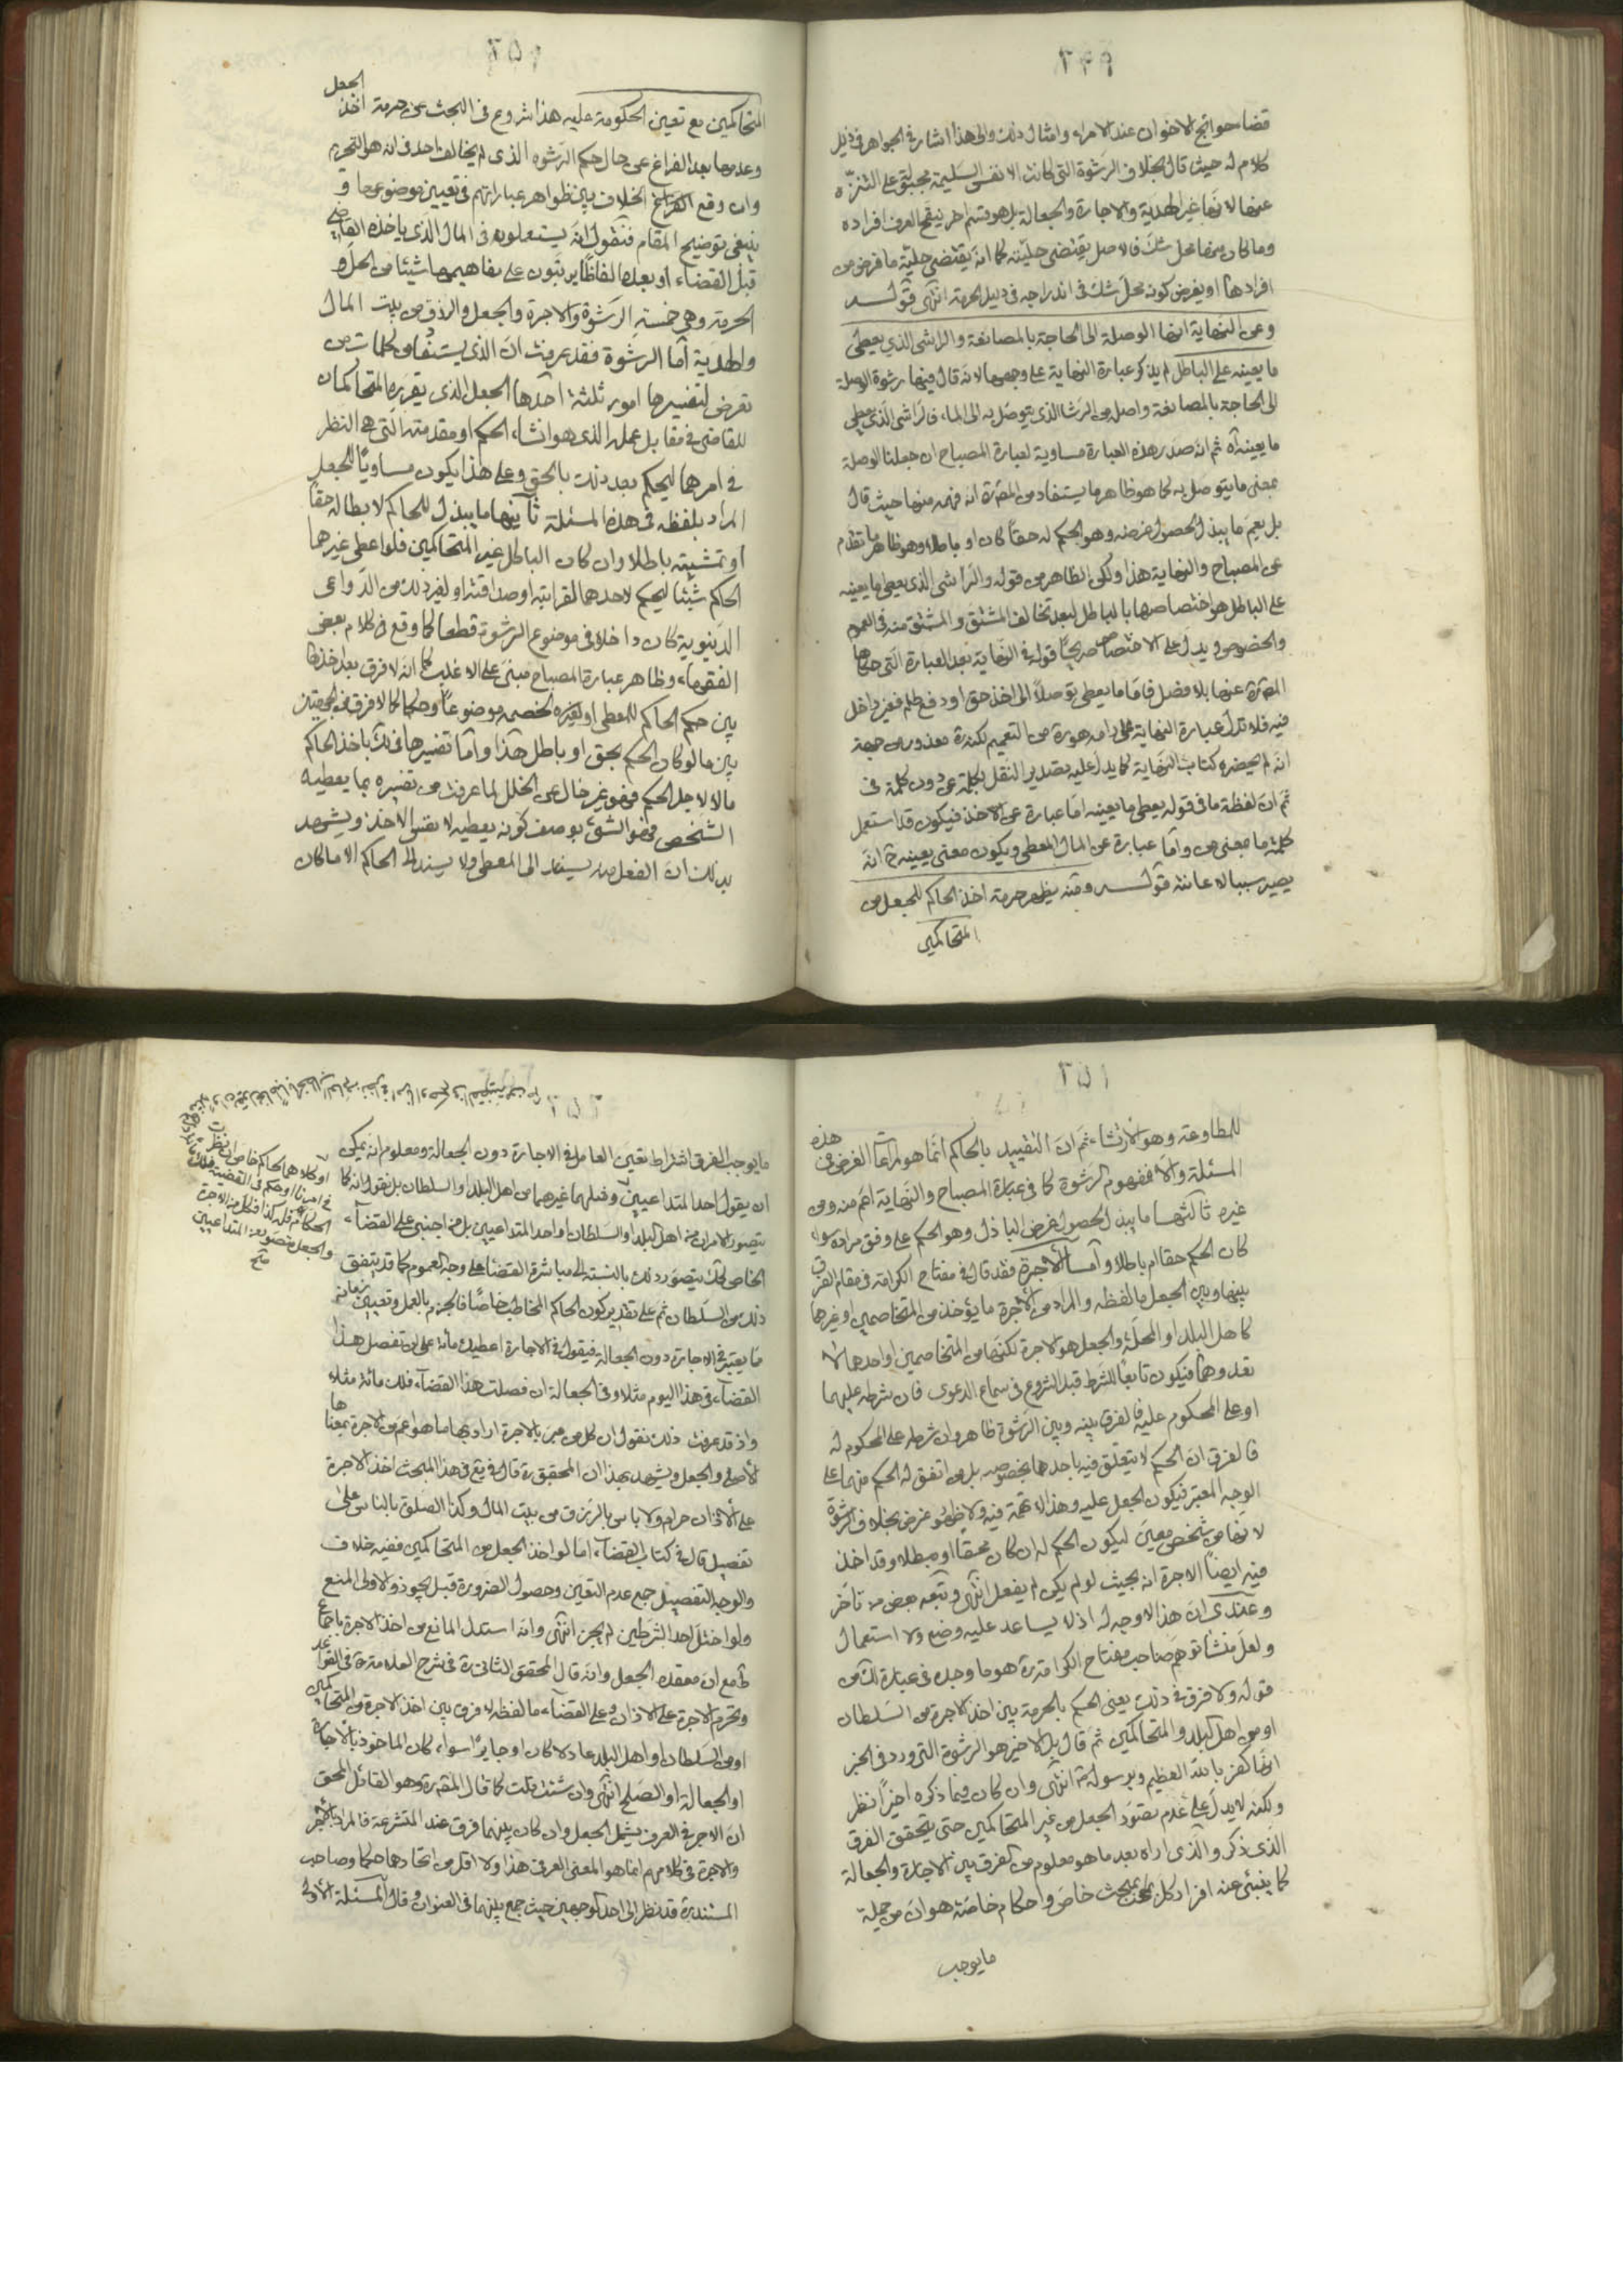 ٢٤٩
قضاء حوائج الاخوان عند الامراء وامثال ذلك والى هذا اشار في الجواهر في ذيل
كلام له حيث قال بخلاف الرشوة التي كانت الانفس السليمة مجبولة على التنزه
عنها لانها غير الهدية والاجارة والجعالة بل هو قسم اخر ينقح العرف افراده
وما كان منها محل شك فالاصل يقتضي حليته كما انه يقتضي حلية ما فرض من
افرادها او يفرض كونه محل شك في اندراجه في دليل الحرمة انتهى قوله
وعن النهاية انها الوصلة الى الحاجة بالمصانعة والراشي الذي يعطي
ما يعينه على الباطل لم يذكر عبارة النهاية على وجهها لانه قال فيها رشوة الوصلة
الى الحاجة بالمصانعة واصله من الرشا الذي يتوصل به الى الماء فالراشي الذي يعطي
ما يعينه آه ثم انه صدر هذه العبارة مساوية لعبارة المصباح ان جعلنا الوصلة
بمعنى ما يتوصل به كما هو ظاهر ما يستفاد من المصره انه فهمه منها حيث قال
بل يعم ما يبذل لحصول غرضه وهو الحكم له حقا كان او باطلا وهو ظاهر ما تقدم
عن المصباح والنهاية هذا ولكن الظاهر من قوله والراشي الذي يعطي ما يعينه
على الباطل هو اختصاصها بالباطل لبعد تخالف المشتق والمشتق منه في العموم
والخصوص ويدل على الاختصاص صريحا قوله في النهاية بعد العبارة التي حكاها
المصره عنها بلا فصل فاما ما يعطى توصلا الى اخذ حق او دفع ظلم فغير داخل
فيه فلا تدل عبارة النهاية على ما هوره من التعميم لكنه معذور من جهة
انه لم يحضره كتاب النهاية كما يدل عليه تصدير النقل بكلمة عن دون كلمة في
ثم ان لفظة ما في قوله يعطي ما يعينه اما عبارة عن الاخذ فيكون قد استعمل
كلمة ما بمعنى من واما عبارة عن المال المعطى ويكون معنى يعينه ح انه
يصير سببا لاعانته قوله ومنه يظهر حرمة اخذ الحاكم للجعل من
المتحاكمين
٢٥٠
المتحاكمين مع تعين الحكومة عليه هذا شروع في البحث عن حرمة اخذ الجعل
وعدمها بعد الفراغ عن حال حكم الرشوه الذي لم يخالف احد في انه هو التحريم
وان وقع الخلاف بين ظواهر عباراتهم في تعيين موضوعها و
ينبغي توضيح المقام فنقول انه يستعملون في المال الذي ياخذه القاضي
قبل القضاء او بعده الفاظا يرتبون على مفاهيمها شيئا من الحل و
الحرمة وهي خمسة الرشوة والاجرة والجعل والرزق من بيت المال
والهدية اما الرشوة فقد عرفت ان الذي يستفاد من كلمات من
تعرض لتفسيرها امور ثلثة احدها الجعل الذي يقرره المتحاكمان
للقاضي في مقابل عمله الذي هو انشاء الحكم او مقدمته التي هي النظر
في امرهما ليحكم بعد ذلك بالحق وعلى هذا يكون مساويا للجعل
المراد بلفظه في هذه المسئلة ثانيها ما يبذل للحاكم لابطاله حقا
او تمشيته باطلا وان كان الباذل غير المتحاكمين فلو اعطى غيرهما
الحاكم شيئا ليحكم لاحدهما لقرابته او صداقته او لغير ذلك من الدواعي
الدنيوية كان داخلا في موضوع الرشوة قطعا كما وقع في كلام بعض
الفقهاء وظاهر عبارة المصباح مبنى على الاغلب كما انه لا فرق بعد اخذها
بين حكم الحاكم للمعطي او لغيره لخصمه موضوعا وحكما كما لا فرق في الجهتين
بين ما لو كان الحكم بحق او باطل هذا واما تفسيرها في لك باخذ الحاكم
مالا لاجل الحكم فهو غير خال عن الخلل لما عرفت من تفسيره بما يعطيه
الشخص فهو الشئ بوصف كونه يعطيه لا نفس الاخذ ويشهد
بذلك ان الفعل منه يسند الى المعطي ولا يسند الى الحاكم الا ما كان
٢٥١
للمطاوعة وهو الارتشاء ثم ان التقييد بالحاكم انما هو لمراعات الغرض في هذه
المسئلة والا فمفهوم الرشوة كما في عبارة المصباح والنهاية اعم منه ومن
غيره ثالثها ما يبذل لحصول غرض الباذل وهو الحكم على وفق مراده سواء
كان الحكم حقا ام باطلا واما الاجرة فقد قال في مفتاح الكرامة في مقام الفرق
بينها وبين الجعل ما لفظه والمراد من الاجرة ما يؤخذ من المتخاصمين او غيرها
كاهل البلد او المحلة والجعل هو الاجرة لكنها من المتخاصمين او احدهما لا
تعدوهما فيكون تابعا للشرط قبل الشروع في سماع الدعوى فان شرطه عليهما
او على المحكوم عليه فالفرق بينه وبين الرشوة ظاهر وان شرطه على المحكوم له
فالفرق ان الحكم لا يتعلق فيه باحدهما بخصوصه بل من اتفق له الحكم منهما على
الوجه المعتبر فيكون الجعل عليه وهذا لا تهمة فيه ولا ظهور غرض بخلاف الرشوة
لانها من شخص معين ليكون الحكم له ان كان محقا او مبطلا وقد اخذ
فيه ايضا الاجرة انه بحيث لو لم يكن لم يفعل انتهى وتبعه بعض من تاخر
وعندي ان هذا لا وجه له اذ لا يساعد عليه وضع ولا استعمال
ولعل منشأ توهم صاحب مفتاح الكرامة ره هو ما وجده في عبارة لك من
قوله ولا فرق في ذلك يعني الحكم بالحرمة بين اخذ الاجرة من السلطان
او من اهل البلد والمتحاكمين ثم قال بل الاخير هو الرشوة التي ورد في الخبر
انها كفر بالله العظيم وبرسوله ص انتهى وان كان فيما ذكره اخيرا نظر
ولكنه لا يدل على عدم تصور الجعل من غير المتحاكمين حتى يتحقق الفرق
الذي ذكر والذي اراه بعد ما هو معلوم من الفرق بين الاجارة والجعالة
كما ينبئ عنه افراد كل بمبحث خاص واحكام خاصة هو ان من جملة
ما يوجب
ما يوجب الفرق اشتراط تعين العامل في الاجارة دون الجعالة ومعلوم انه يمكن
ان يقول احد المتداعيين ومثلهما غيرهما من اهل البلد او السلطان بل نقول انه كما
يتصور الامران من اهل البلد او السلطان او احد المتداعيين بل من اجنبي على القضاء
الخاص كك يتصور ذلك بالنسبة الى مباشرة القضاء على وجه العموم كما قد يتفق
ذلك من السلطان ثم على تقدير كون الحاكم المخاطب خاصا فالجزم بالعمل وتعيين زمانه
مما يعتبر في الاجارة دون الجعالة فيقول في الاجارة اعطيك مائة على ان تفصل هذا
القضاء في هذا اليوم مثلا وفي الجعالة ان فصلت هذا القضاء فلك مائة مثلا
واذ قد عرفت ذلك نقول ان كل من عبر بالاجرة اراد بها ما هو اعم من الاجرة بمعناها
الاصلي والجعل ويشهد بهذا ان المحقق ره قال في يع في هذا المبحث اخذ الاجرة
على الاذان حرام ولا باس بالرزق من بيت المال وكذا الصلوة بالناس على
تفصيل قال في كتاب القضاء اما لو اخذ الجعل من المتحاكمين ففيه خلاف
والوجه التفصيل فمع عدم التعين وحصول الضرورة قيل يجوز والاولى المنع
ولو اختل احد الشرطين لم يجز انتهى وانه استدل المانع من اخذ الاجرة باجماع
ف مع ان معقده الجعل وانه قال المحقق الثاني ره في شرح العلامة ره في القواعد
وتحرم الاجرة على الاذان وعلى القضاء ما لفظه لا فرق بين اخذ الاجرة من المتحاكمين
او من السلطان او اهل البلد عادلا كان او جايرا سواء كان الماخوذ بالاجارة
او الجعالة او الصلح انتهى وان شئت قلت كما قال المصره وهو القائل المحق
ان الاجر في العرف يشمل الجعل وان كان بينهما فرق عند المتشرعة فالمراد بالاجر
والاجرة في كلامهم انما هو المعنى العرفي هذا ولا اقل من اتحادهما حكما وصاحب
المستند ره قد نظر الى احد الوجهين حيث جمع بينهما في العنوان وقال المسئلة الاولى
او كلاهما لحاكم خاص ان نظرت
في امرنا او حكم في القضية فلك